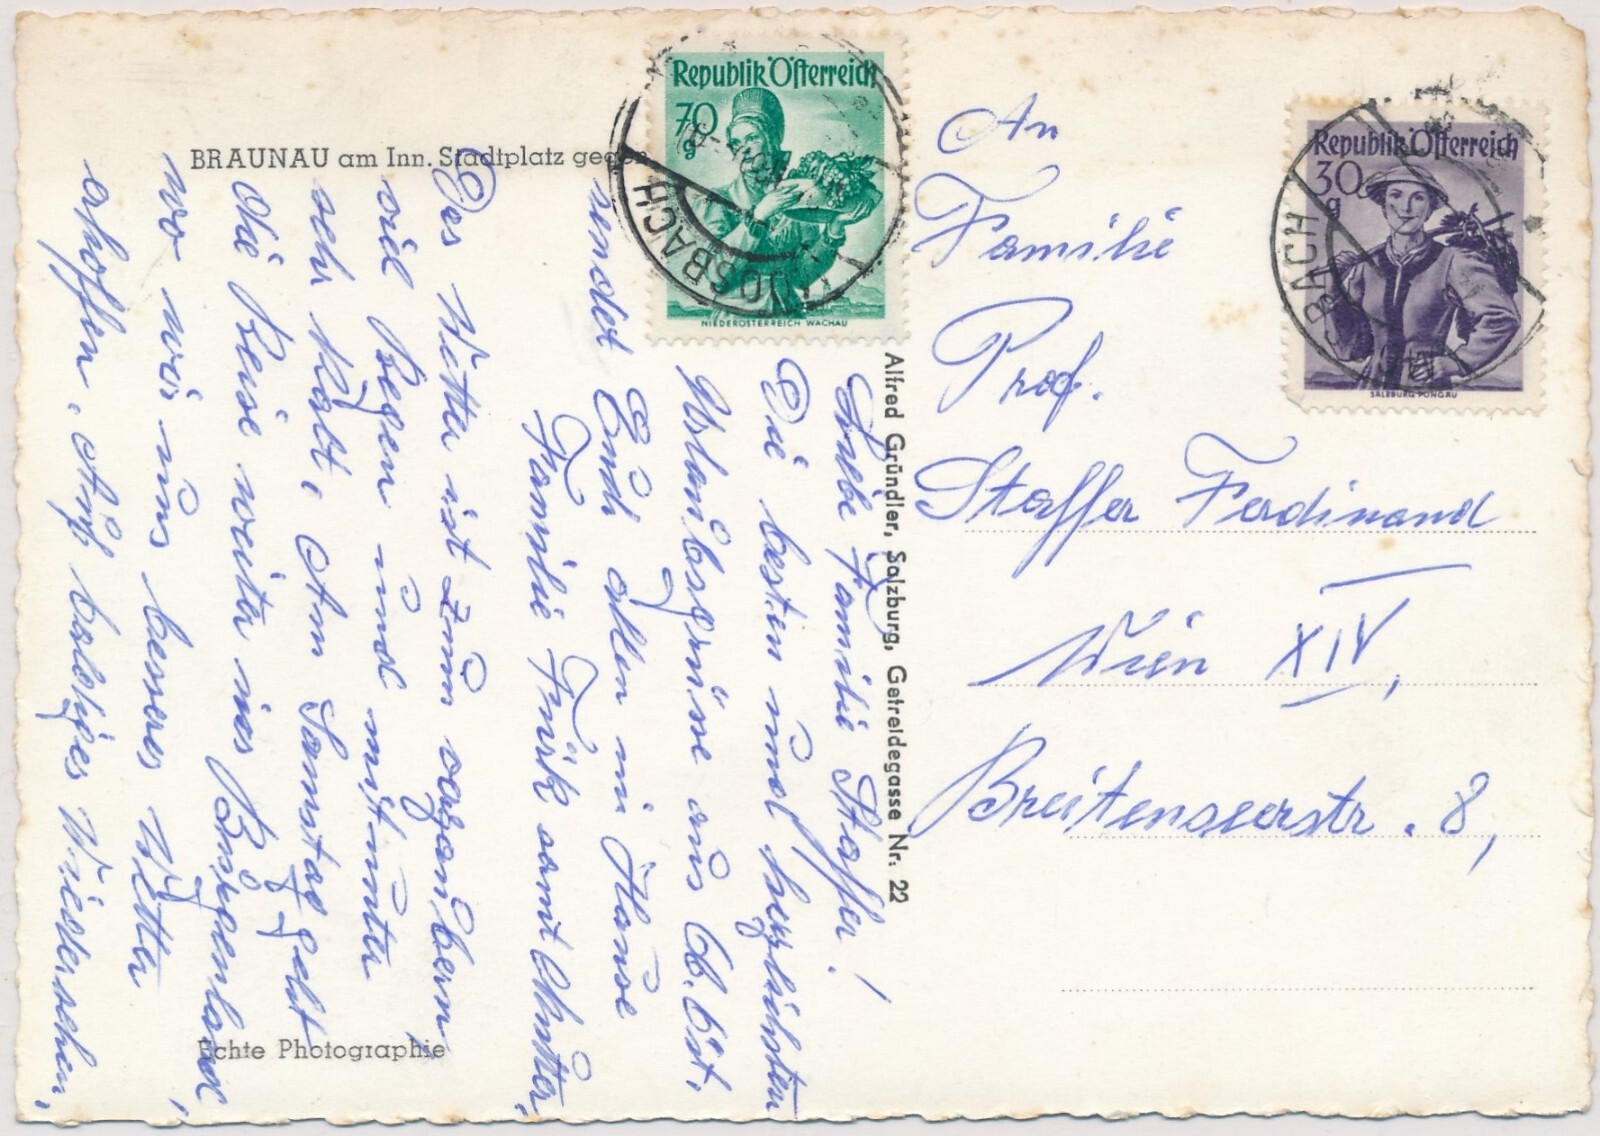 BRAUNAU am Inn. Stadtplatz gegen
Republik Österreich
70
g
NIEDERÖSTERREICH WACHAU
MOOSBACH
Republik Österreich
30
g
SALZBURG PONGAU
BACH
An
Familie
Prof.
Staffer Ferdinand
Wien XIV,
Breitenseerstr. 8,
Alfred Gründler, Salzburg, Getreidegasse Nr. 22
Liebe Familie Staffer!
Die besten und herzlichsten
Urlaubsgrüsse aus Ob. Öst,
sendet Euch allen im Hause
Familie Türk samt Mutter,
Das Wetter ist zum verzaubern
viel Regen und mitunter
sehr kalt, Am Samstag geht
die Reise weiter ins Burgenland,
wo wir uns besseres Wetter
erhoffen. Auf baldiges Wiedersehen,
Echte Photographie